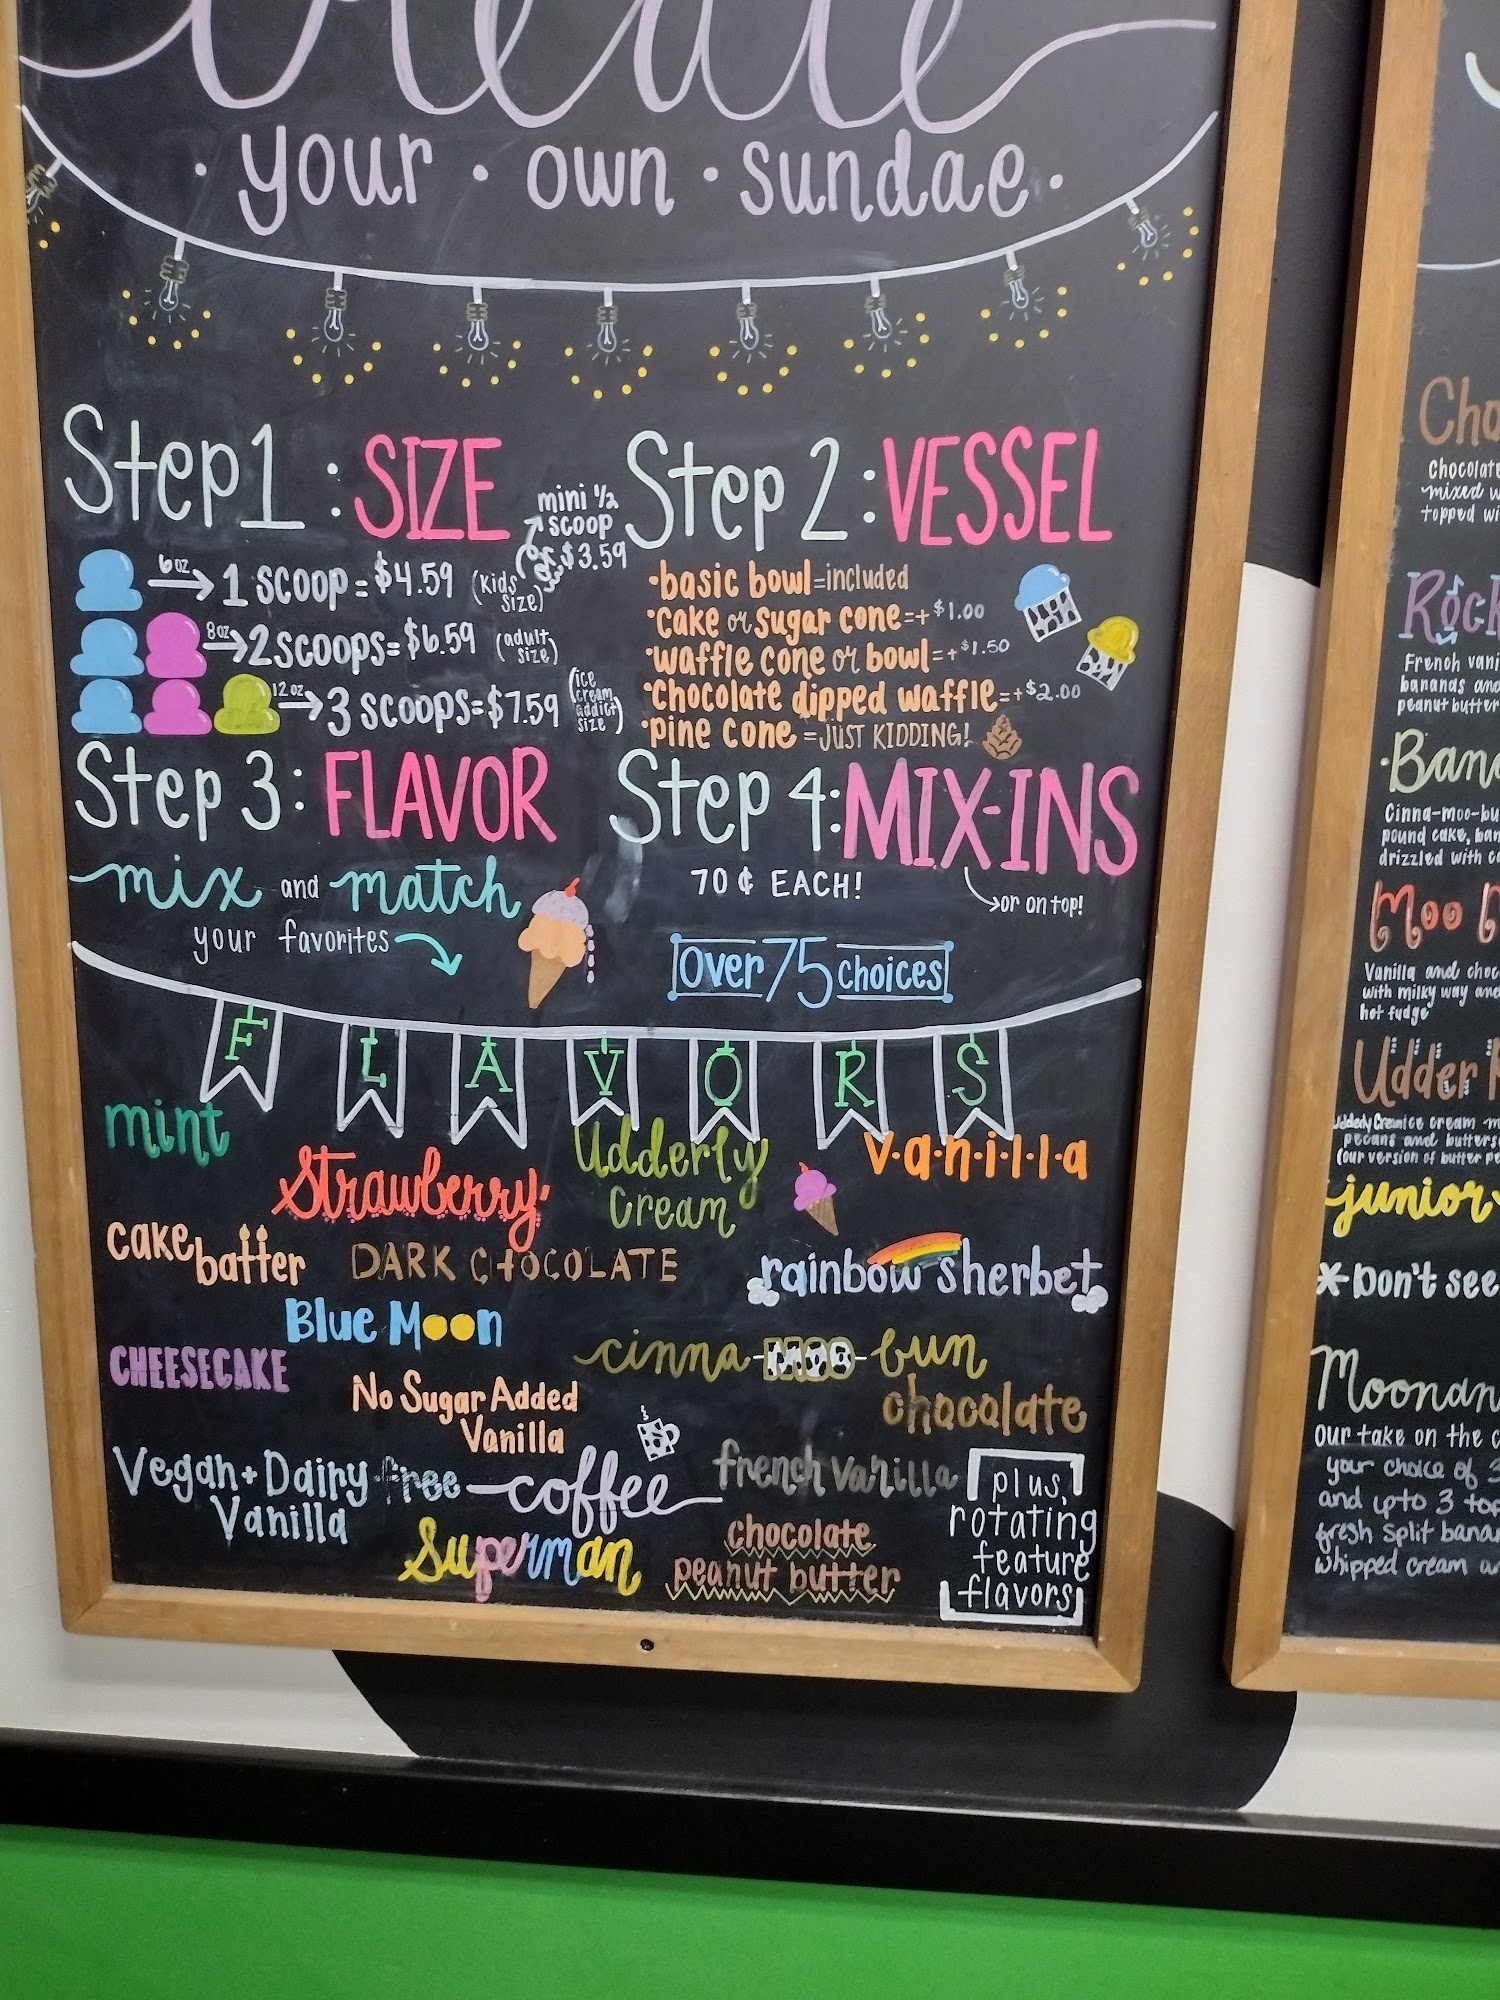 Create
· your · own · sundae ·
Step 1 : SIZE
mini 1/2
scoop
or $3.59
6oz → 1 scoop = $4.59 (kids size)
8oz → 2 scoops = $6.59 (adult size)
12oz → 3 scoops = $7.59 (ice cream addict size)
Step 2 : VESSEL
·basic bowl = included
·cake or sugar cone = + $1.00
·waffle cone or bowl = + $1.50
·chocolate dipped waffle = + $2.00
·pine cone = JUST KIDDING!
Step 3 : FLAVOR
mix and match
your favorites
Step 4: MIX-INS
70 ¢ EACH!
or on top!
Over 75 choices
FLAVORS
mint
Strawberry
Udderly
Cream
V·a·n·i·l·l·a
cake batter
DARK CHOCOLATE
rainbow sherbet
Blue Moon
CHEESECAKE
cinna-moo-bun
No Sugar Added
Vanilla
chocolate
Vegan + Dairy free
Vanilla
coffee
french vanilla
Superman
chocolate
peanut butter
plus,
rotating
feature
flavors
Chocolate
mixed
topped
French
bananas and
peanut butter
Cinna-moo-bu
pound cake,
drizzled with
Moo
Vanilla and
with milky way and
hot fudge
Udder
cream
pecans and
(our version of butter
junior
*Don't see
our take on the
your choice of 3
and up to 3
fresh split
whipped cream